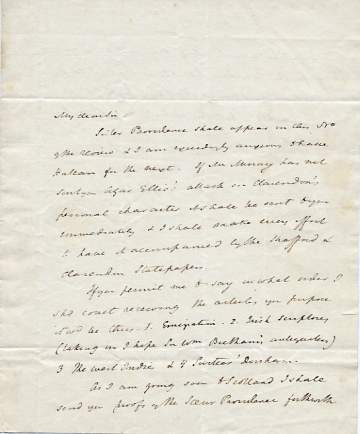 My dear Sir
Sister Providence shall appear in this No
of the Review & I am exceedingly anxious to have
Hallam for the next. If Mr Murray has not
sent you Agar Ellis' attack on Clarendon's
personal character it shall be sent to you
immediately & I shall make every effort
to have it accompanied by the Strafford &
Clarendon State papers
If you permit me to say in what order I
shd covet receiving the articles you purpose
it wd be thus 1. Emigration. 2. Irish sculptures
(taking in I hope Sir Wm Betham's antiquities)
3 The West Indies & 4 Surtees' Durham.
As I am going soon to Scotland I shall
send you proofs of the Sœur Providence forthwith